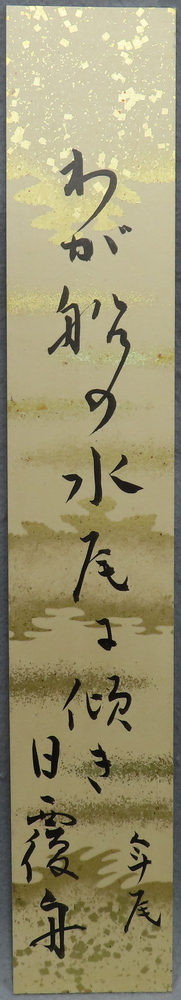 わが船の水尾に傾き
日覆舟